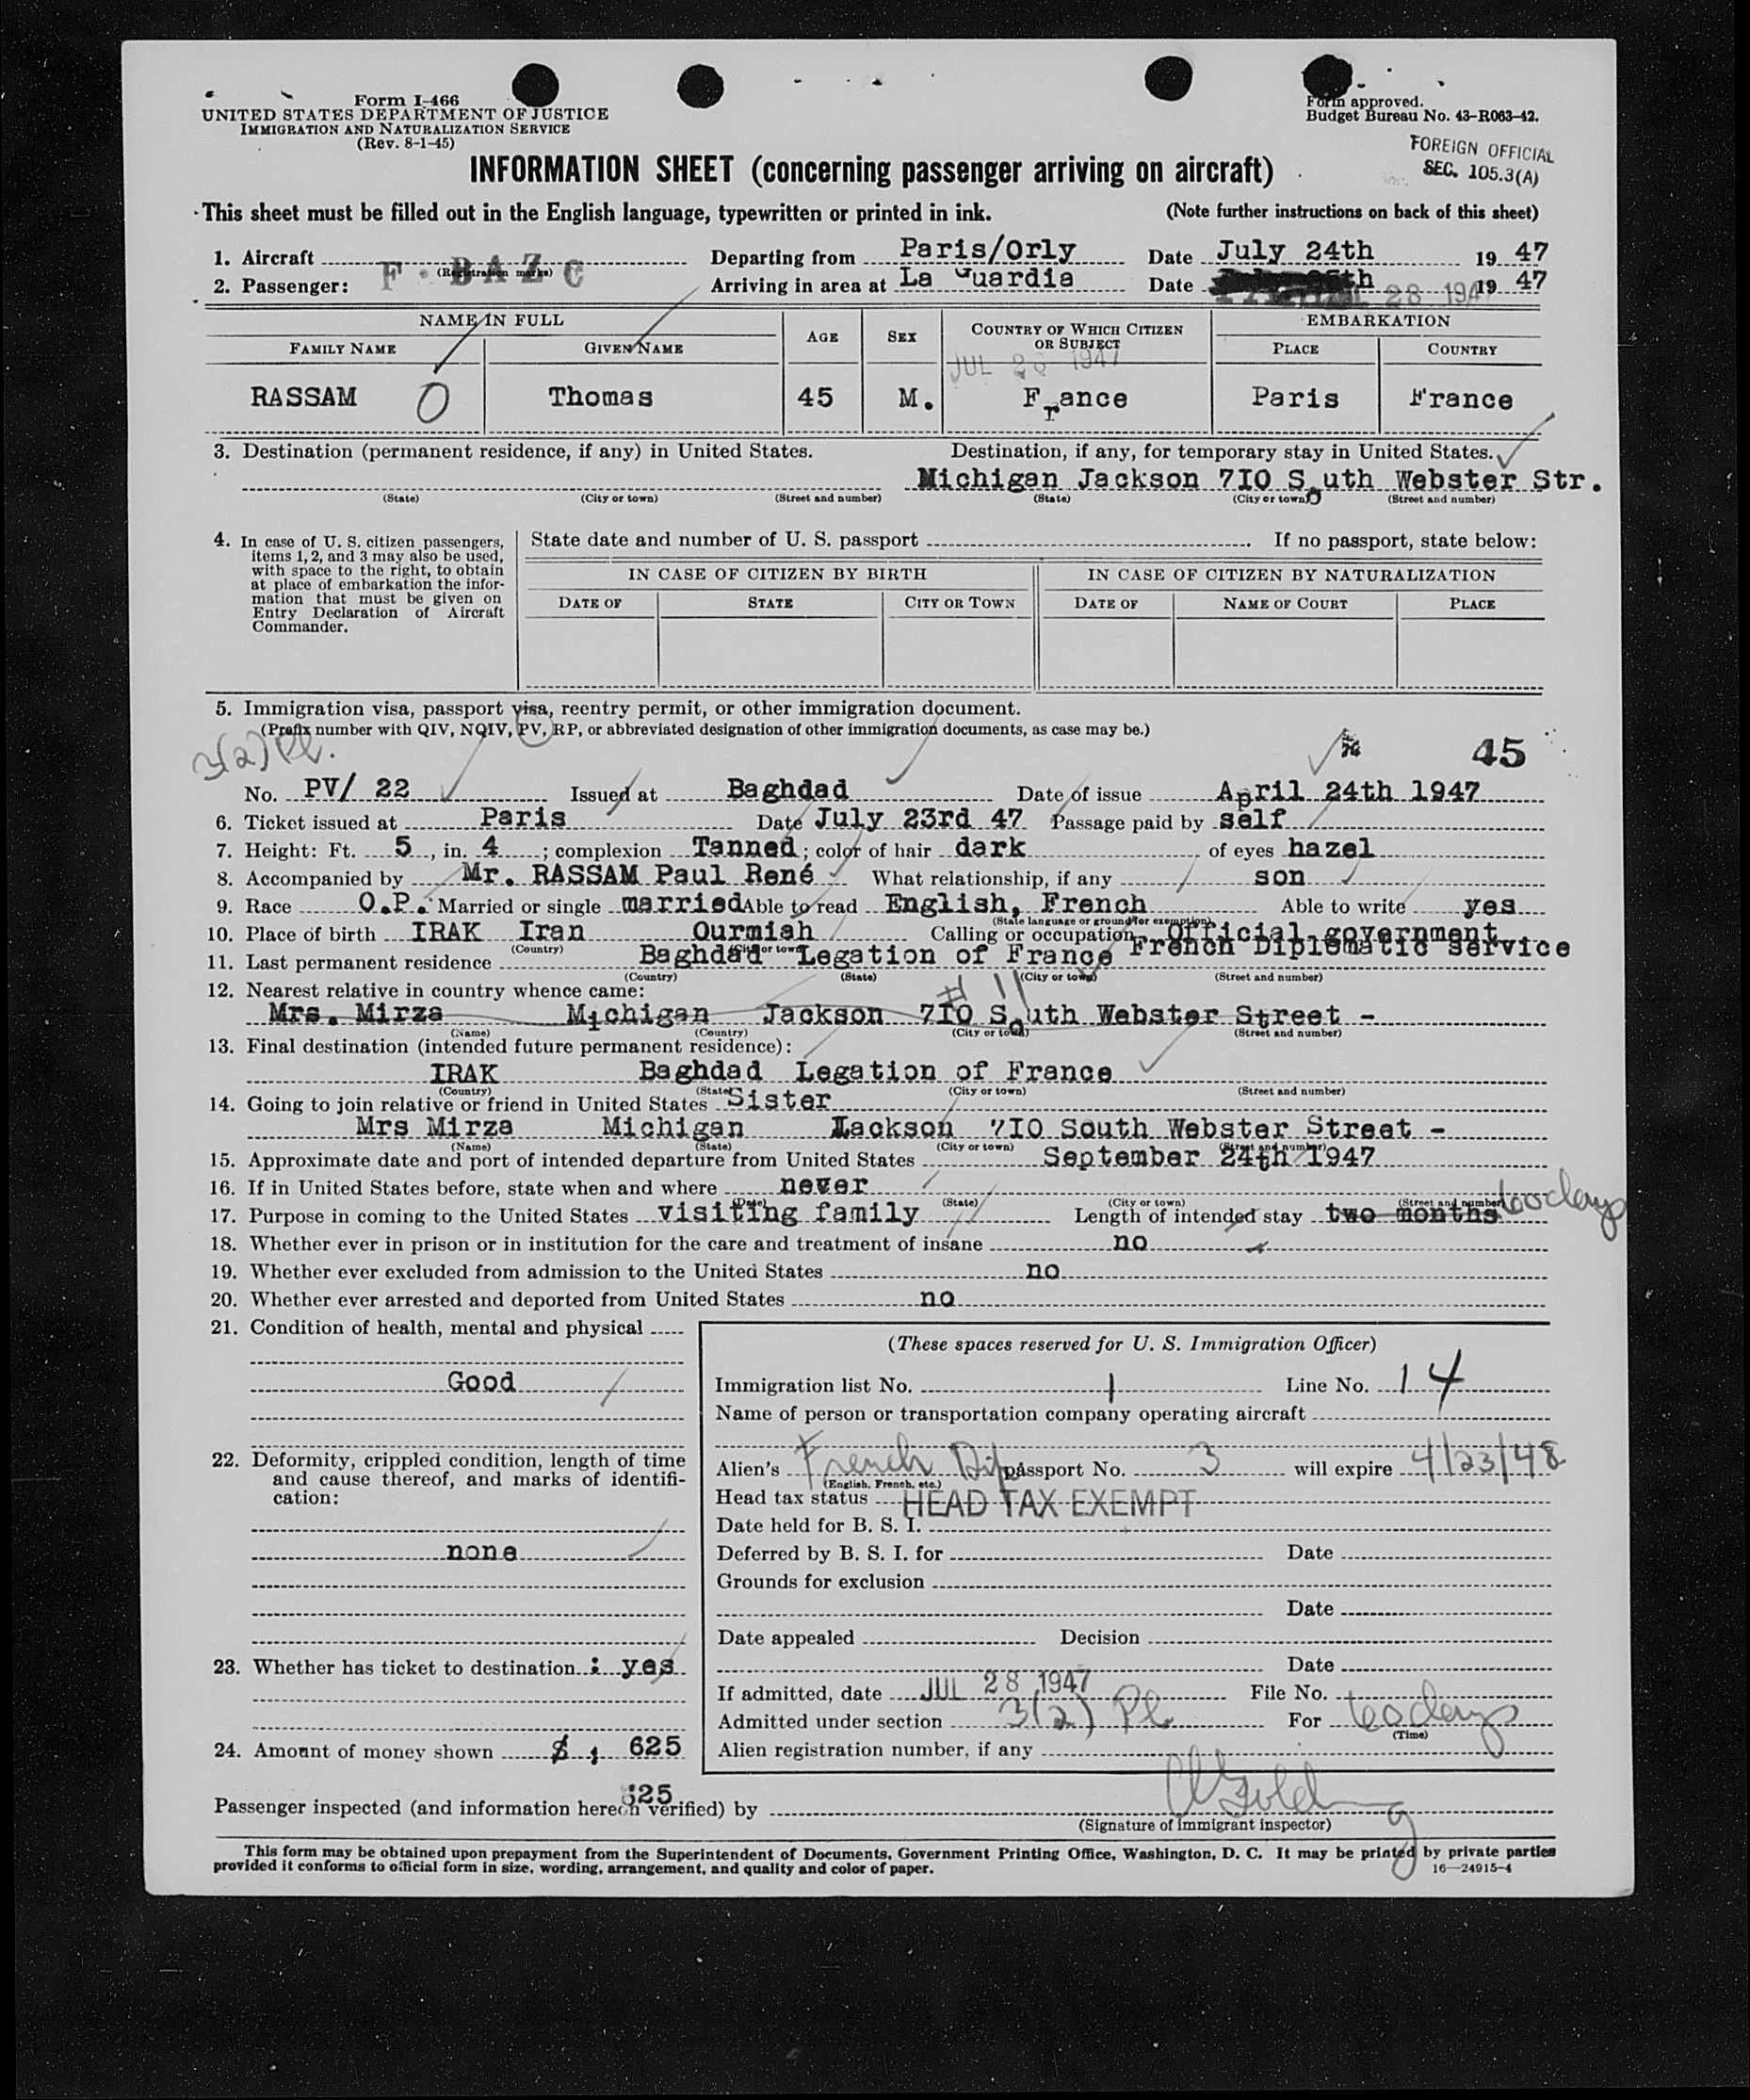 Form I-466
UNITED STATES DEPARTMENT OF JUSTICE
IMMIGRATION AND NATURALIZATION SERVICE
(Rev. 8-1-45)
Form approved.
Budget Bureau No. 43-R063-42.
FOREIGN OFFICIAL
SEC. 105.3(A)
INFORMATION SHEET (concerning passenger arriving on aircraft)
This sheet must be filled out in the English language, typewritten or printed in ink. (Note further instructions on back of this sheet)
1. Aircraft F-BAZC (Registration marks) Departing from Paris/Orly Date July 24th 1947
2. Passenger: Arriving in area at La Guardia Date 28 1947 1947
NAME IN FULL
FAMILY NAME GIVEN NAME AGE SEX COUNTRY OF WHICH CITIZEN OR SUBJECT EMBARKATION
PLACE COUNTRY
JUL 28 1947
RASSAM O Thomas 45 M. France Paris France
3. Destination (permanent residence, if any) in United States. Destination, if any, for temporary stay in United States.
Michigan Jackson 7I0 South Webster Str.
(State) (City or town) (Street and number) (State) (City or town) (Street and number)
4. In case of U. S. citizen passengers, items 1, 2, and 3 may also be used, with space to the right, to obtain at place of embarkation the information that must be given on Entry Declaration of Aircraft Commander.
State date and number of U. S. passport . If no passport, state below:
IN CASE OF CITIZEN BY BIRTH IN CASE OF CITIZEN BY NATURALIZATION
DATE OF STATE CITY OR TOWN DATE OF NAME OF COURT PLACE
5. Immigration visa, passport visa, reentry permit, or other immigration document.
(Prefix number with QIV, NQIV, PV, RP, or abbreviated designation of other immigration documents, as case may be.)
3(2) Pl. 45
No. PV/ 22 Issued at Baghdad Date of issue April 24th 1947
6. Ticket issued at Paris Date July 23rd 47 Passage paid by self
7. Height: Ft. 5, in. 4; complexion Tanned; color of hair dark of eyes hazel
8. Accompanied by Mr. RASSAM Paul René What relationship, if any son
9. Race O.P. Married or single married Able to read English, French Able to write yes
(State language or ground for exemption)
10. Place of birth IRAK Iran Ourmiah Calling or occupation Official government
(Country) (City or town) French Diplomatic service
11. Last permanent residence Baghdad Legation of France
(Country) (State) (City or town) (Street and number)
12. Nearest relative in country whence came: # 11
Mrs. Mirza Michigan Jackson 7I0 South Webster Street -
(Name) (Country) (City or town) (Street and number)
13. Final destination (intended future permanent residence):
IRAK Baghdad Legation of France
(Country) (State) (City or town) (Street and number)
14. Going to join relative or friend in United States Sister
Mrs Mirza Michigan Jackson 7I0 South Webster Street -
(Name) (State) (City or town) (Street and number)
15. Approximate date and port of intended departure from United States September 24th 1947
16. If in United States before, state when and where never
(Date) (State) (City or town) (Street and number)
17. Purpose in coming to the United States visiting family Length of intended stay two months 60 days
18. Whether ever in prison or in institution for the care and treatment of insane no
19. Whether ever excluded from admission to the United States no
20. Whether ever arrested and deported from United States no
21. Condition of health, mental and physical
Good
22. Deformity, crippled condition, length of time and cause thereof, and marks of identification:
none
23. Whether has ticket to destination : yes
24. Amount of money shown $ , 625
(These spaces reserved for U. S. Immigration Officer)
Immigration list No. 1 Line No. 14
Name of person or transportation company operating aircraft
Alien's French Dip. passport No. 3 will expire 4/23/48
(English, French, etc.)
Head tax status HEAD TAX EXEMPT
Date held for B. S. I.
Deferred by B. S. I. for Date
Grounds for exclusion
Date
Date appealed Decision
Date
If admitted, date JUL 28 1947 File No.
Admitted under section 3(2) Pl For 60 days
(Time)
Alien registration number, if any
625
Passenger inspected (and information hereon verified) by
(Signature of immigrant inspector)
This form may be obtained upon prepayment from the Superintendent of Documents, Government Printing Office, Washington, D. C. It may be printed by private parties
provided it conforms to official form in size, wording, arrangement, and quality and color of paper. 16—24915-4